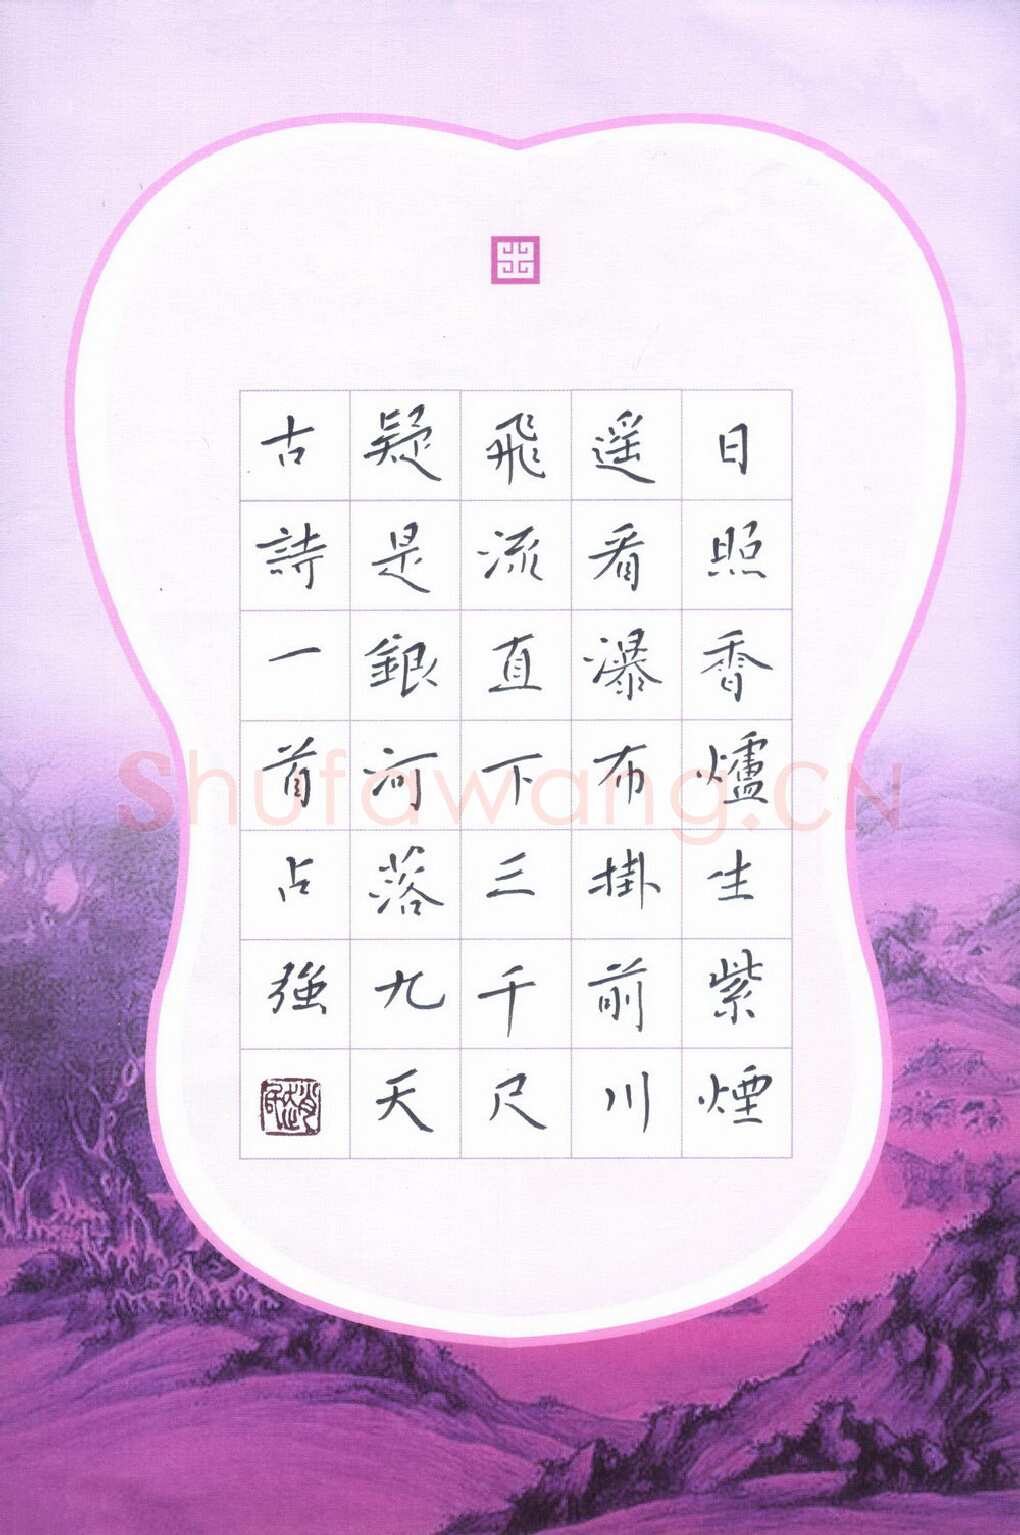 日照香爐生紫煙
遥看瀑布掛前川
飛流直下三千尺
疑是銀河落九天
古詩一首占強
Shufawang.CN